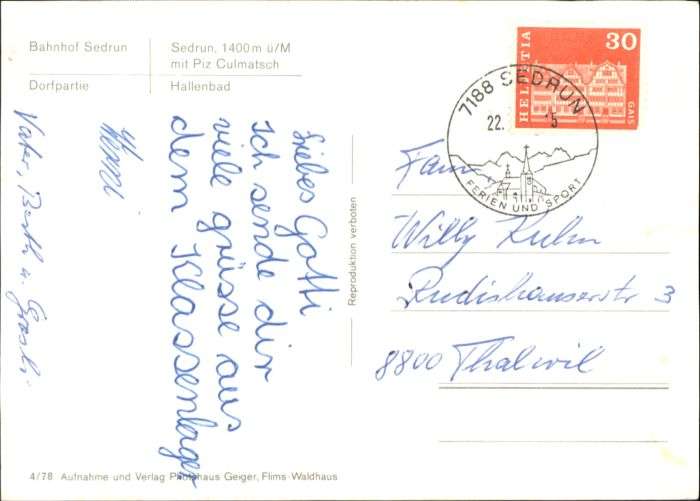 Bahnhof Sedrun
Sedrun, 1400 m ü/M
mit Piz Culmatsch
Dorfpartie
Hallenbad
Liebes Gotti
Ich sende dir
viele grüsse aus
dem Klassenlager
Vater, Beth u.
Reproduktion verboten
4/78 Aufnahme und Verlag Photohaus Geiger, Flims-Waldhaus
HELVETIA
30
GAIS
7188 SEDRUN
22.
FERIEN UND SPORT
Fam
Willy Kuhn
Rudishauserstr 3
8800 Thalwil